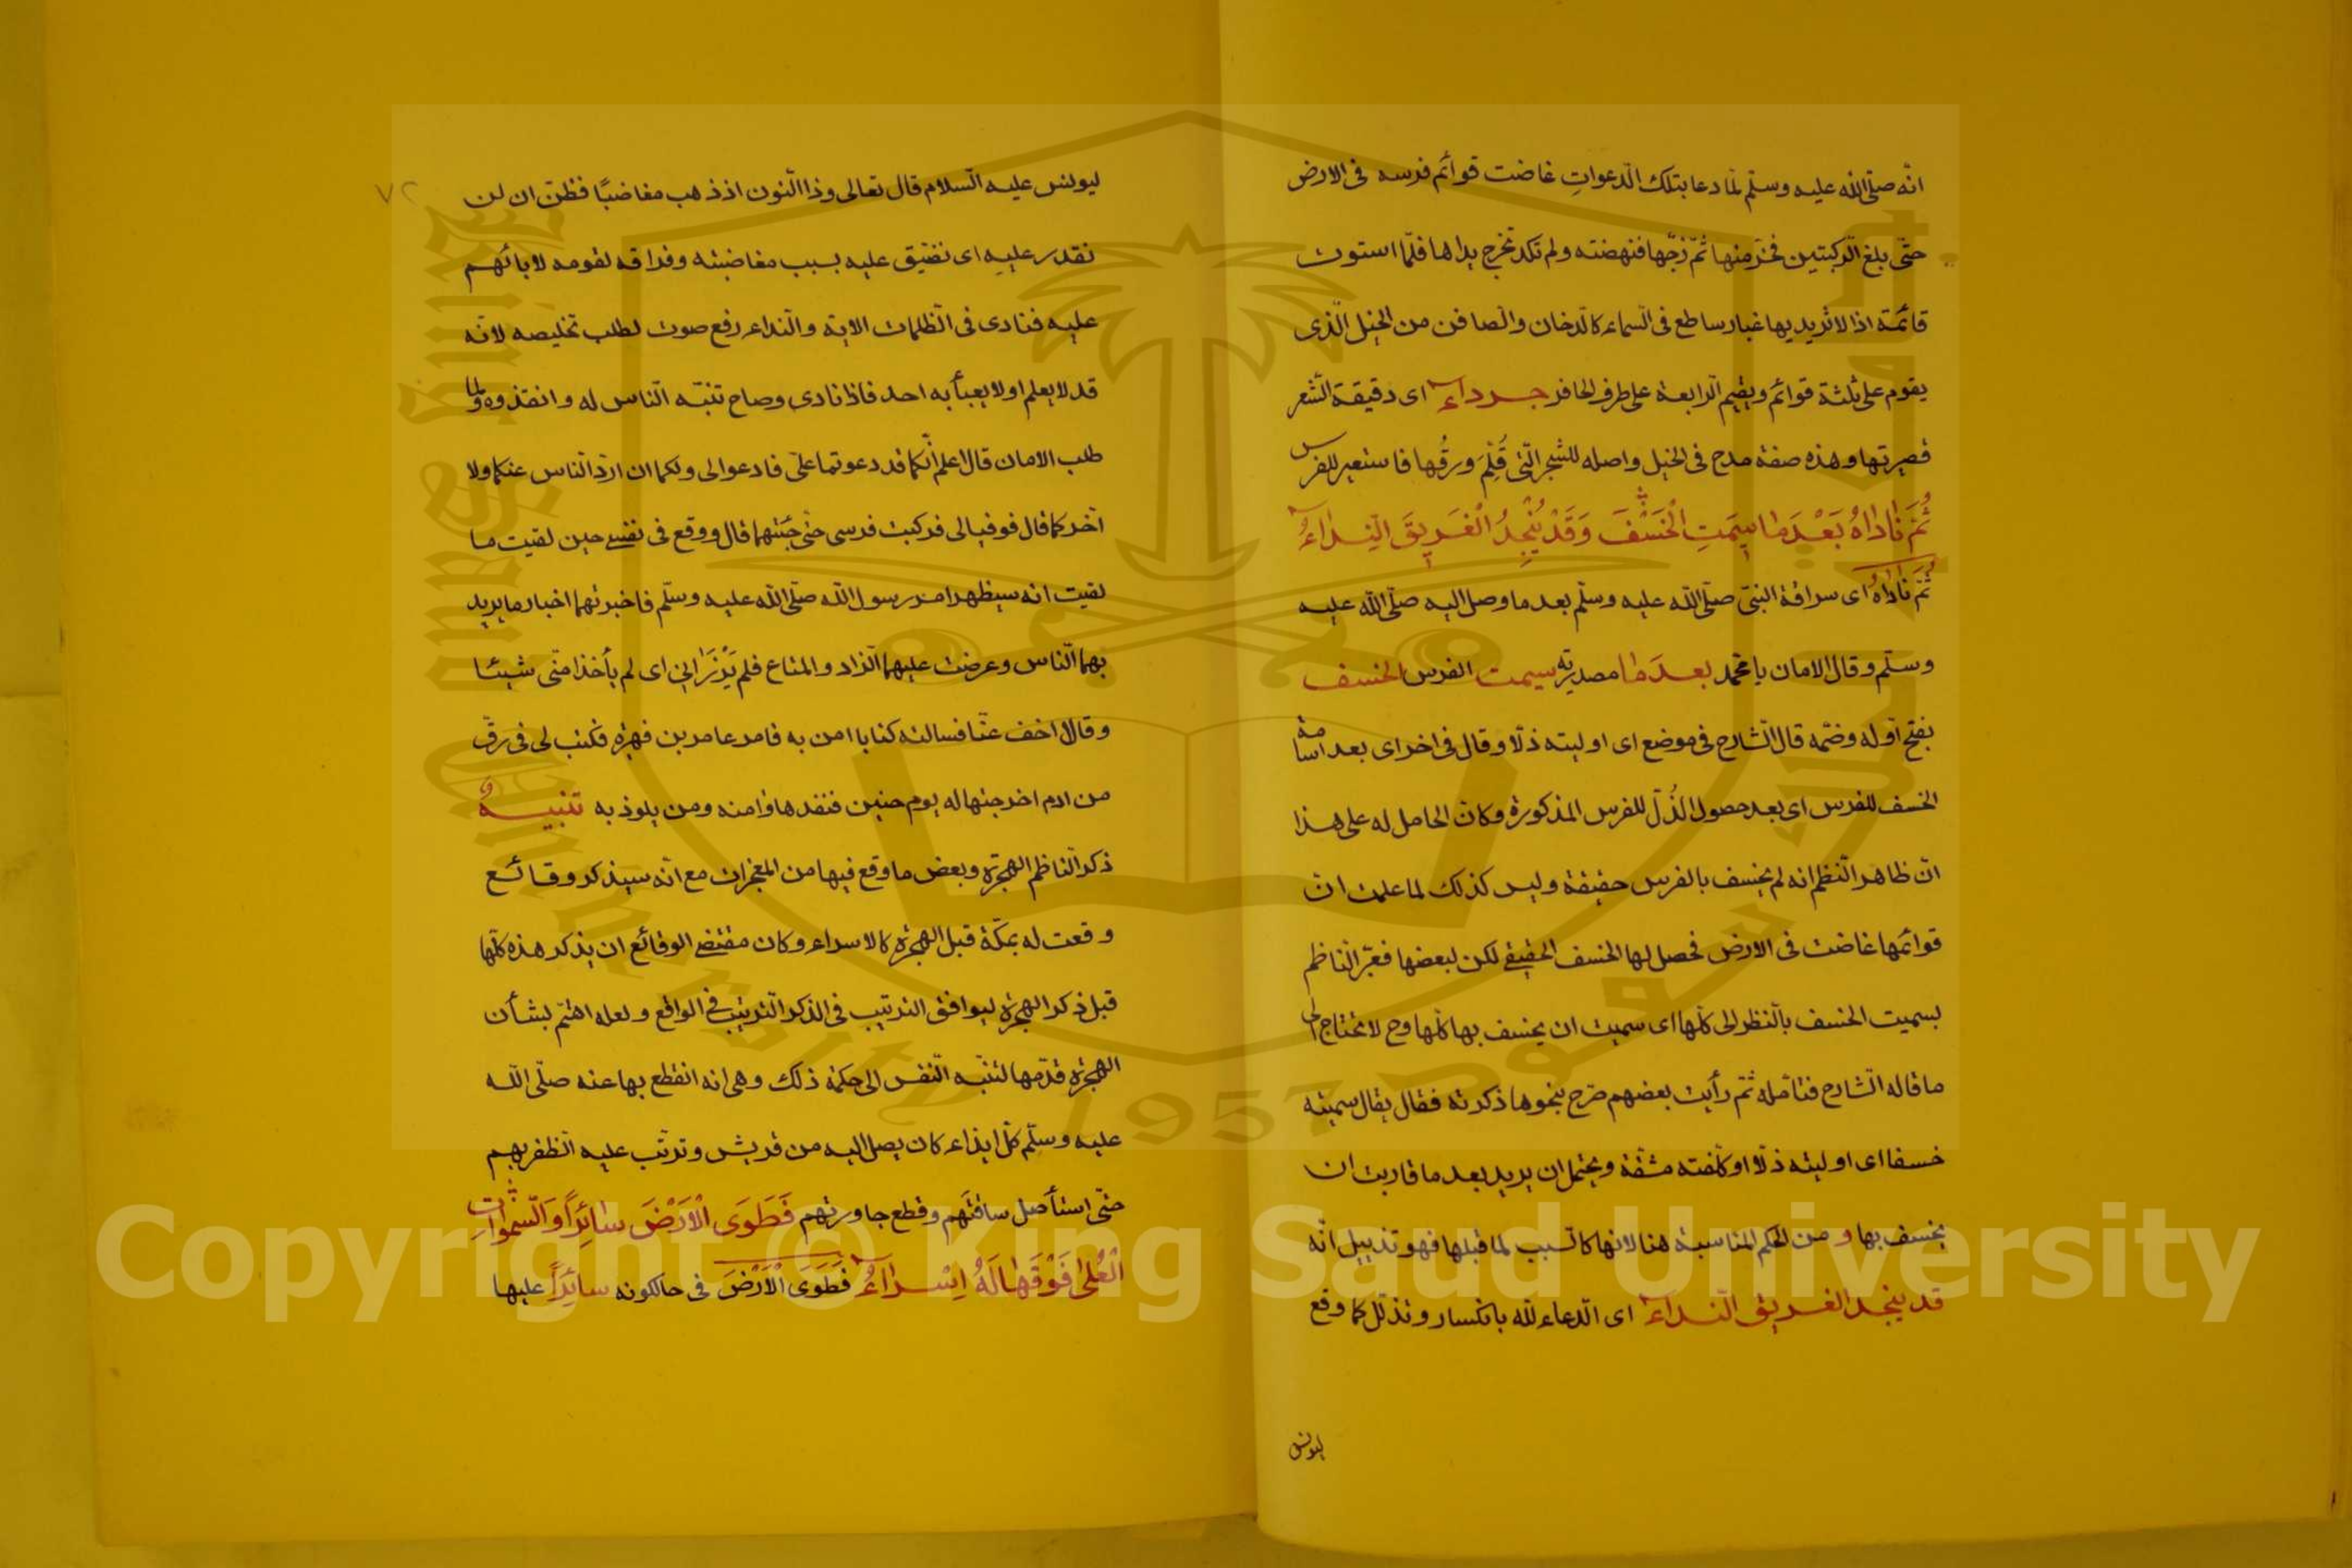 انّه صلّى اللّه عليه وسلّم لمّا دعا بتلك الدّعواتِ غاضت قوائم فرسه فى الارض
حتّى بلغ الرّكبتين فخرّ منها ثمّ زجّها فنهضته ولم تكد تخرج يداها فلمّا استوت
قائمة اذا لاثر يديها غبار ساطع فى السّماء كالدّخان والصّافن من الخيل الّذى
يقوم على ثلثة قوائم ويقيم الرّابعة على طرف الحافر جرداء اى دقيقة الشّعر
قصيرتها وهذه صفة مدح فى الخيل واصله للشّجر الّتى قُلِمَ ورقُها فاستعير للفرس
ثُمَّ نَادَاهُ بَعْدَمَا سِيمَتِ الْخَسْفَ وَقَدْ يُنْجِدُ الْغَرِيقَ النِّدَاءُ
ثُمَّ نَادَاهُ اى سراقة النبىّ صلّى اللّه عليه وسلّم بعد ما وصل اليه صلّى اللّه عليه
وسلّم وقال الامان يا محمّد بعدَ ما مصدريّه سيمت الفرس الخسف
بفتح اوّله وضمّه قال الشّارح فى موضع اى اوليته ذلّا وقال فى اخر اى بعد اسامة
الخسف للفرس اى بعد حصول الذُلّ للفرس المذكورة وكان الحامل له على هذا
انّ ظاهر النّظم انه لم يخسف بالفرس حقيقة وليس كذلك لما علمت انّ
قوائمها غاضت فى الارض فحصل لها الخسف الحقيقى لكن لبعضها فعبّر النّاظم
بسميت الخسف بالنّظر الى كلّها اى سميت ان يخسف بها كلّها وح لا نحتاج الى
ما قاله الشّارح فتامّله ثمّ رأيت بعضهم صرّح بنحو ما ذكرته فقال يقال سميته
خسفا اى اوليته ذلّا او كلّفته مشقّة ويحتمل ان يريد بعد ما قاربت ان
يخسف بها و من الحكم المناسبة هنا لانها كالسّبب لما قبلها فهو تذييل انّه
قد ينجد الغريق النّداء اى الدّعاء للّه بانكسار وتذلّل كما وقع
ليونس
٧٢
ليونس عليه السّلام قال تعالى وذا النّون اذ ذهب مغاضبًا فظنّ ان لن
نقدر عليهِ اى نضيّق عليه بسبب مغاضبته وفراقه لقومه لابائهم
عليه فنادى فى الظّلمات الاية والنّداء رفع صوت لطلب تخليصه لانّه
قد لا يعلم او لا يعبأ به احد فاذا نادى وصاح تنبّه النّاس له وانقذوه ولما
طلب الامان قال اعلم انّكما قد دعوتما علىّ فادعوا لى ولكما ان اردّ النّاس عنكما ولا
اخرّ كما قال فوفيا لى فركبت فرسى حتى جئتهما قال ووقع فى نفسى حين لقيت ما
لقيت انه سيظهر امر رسول اللّه صلّى اللّه عليه وسلّم فاخبرتهما اخبار ما يريد
بهما النّاس وعرضت عليهما الزّاد والمتاع فلم يَرْزَانِى اى لم يأخذا منّى شيئا
وقالا اخف عنّا فسالته كتابا امن به فامر عامر بن فهيرة فكتب لى فى رقّ
من ادم اخرجتها له يوم حنين فنفدها وامنه ومن يلوذ به تنبيهٌ
ذكر النّاظم الهجرة وبعض ما وقع فيها من المعجزات مع انّه سيذكر وقائع
وقعت له بمكّة قبل الهجرة كالاسراء وكان مقتضى الوقائع ان يذكر هذه كلّها
قبل ذكر الهجرة ليوافق الترتيب فى الذكر التّرتيب فى الواقع ولعله اهتمّ بشأن
الهجرة قدّمها لتنبّه النّفس الى حكمة ذلك وهى انه انقطع بها عنه صلّى اللّه
عليه وسلّم كلّ ايذاء كان يصل اليه من قريش وترتّب عليه الظفر بهم
حتّى استأصل ساقتَهم وقطع جاورتهم فَطَوَى الْاَرْضَ سَائِراً وَالسَّمٰوَاتِ
الْعُلَى فَوْقَهَا لَهُ اِسْرَاءُ فَطَوَى الْاَرْضَ فى حال كونه سائِراً عليها
Copyright © King Saud University
King Saud University
1957